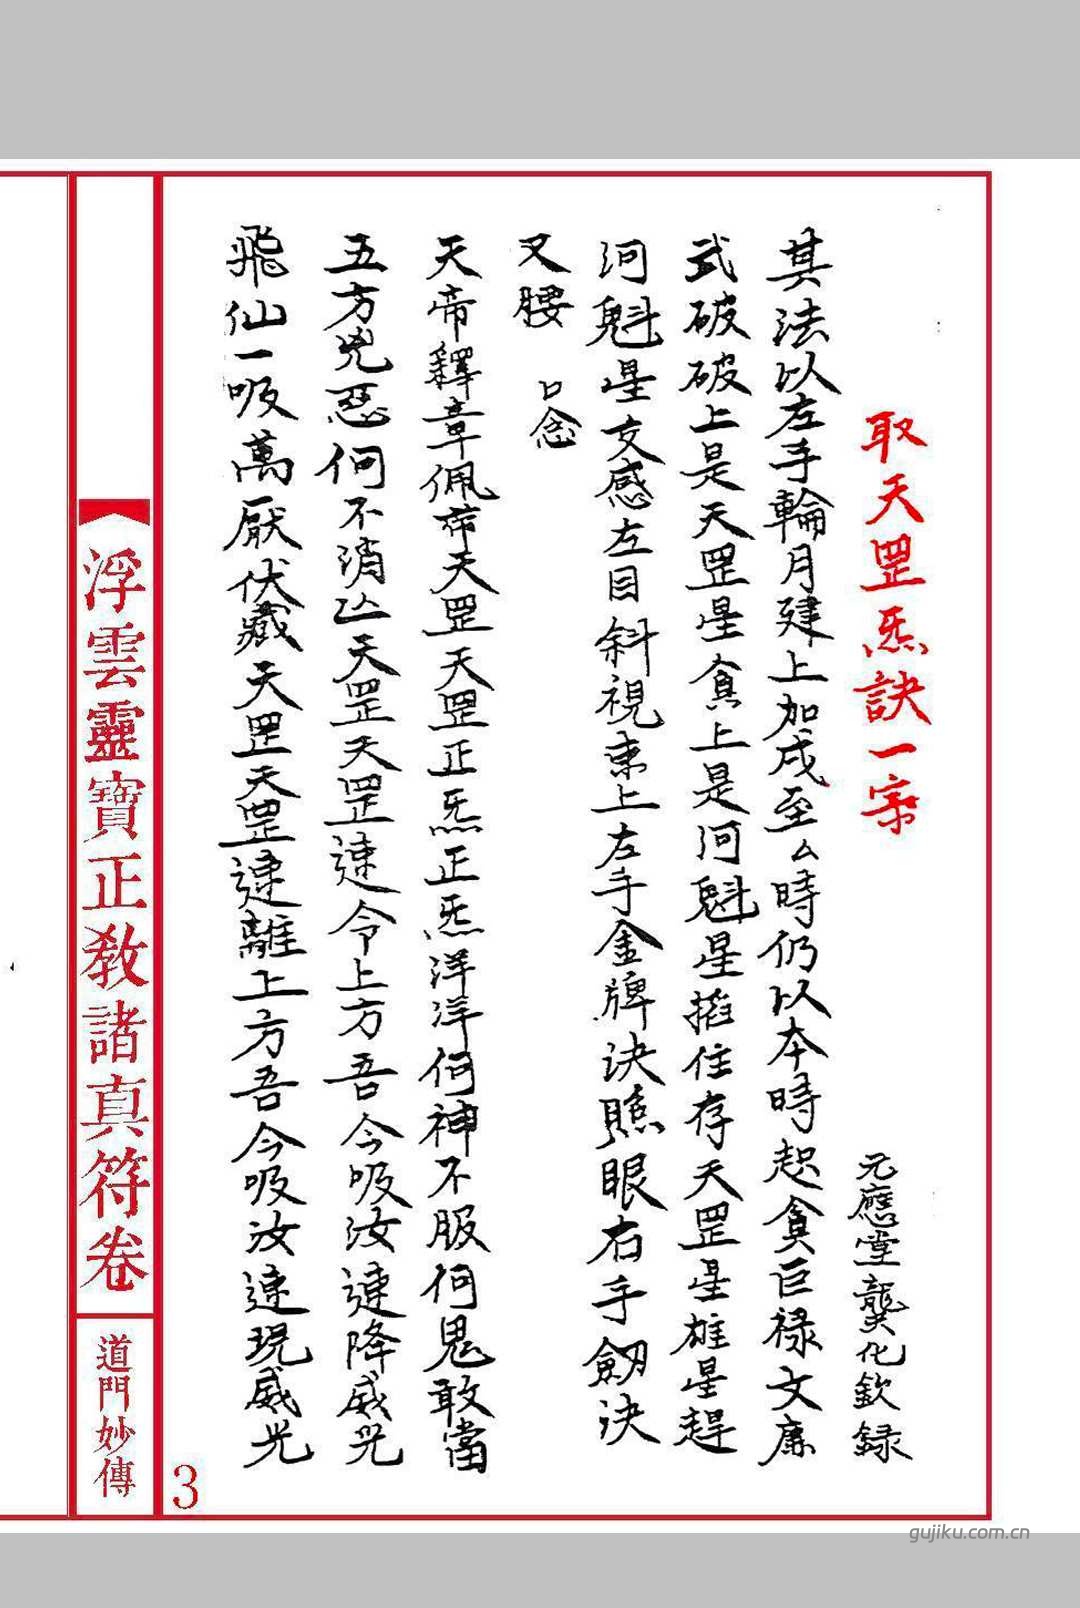 取天罡炁訣一宗
元應堂龔化欽録
其法以左手輪月建上加戌至么時仍以本時起貪巨禄文廉
武破破上是天罡星貪上是河魁星掐住存天罡星雄星趕
河魁星交感左目斜視東上左手金牌决照眼右手劒决
又腰 口念
天帝釋章佩帯天罡天罡正炁正炁洋洋何神不服何鬼敢當
五方兇惡何不消亾天罡天罡速令上方吾今吸汝速降威光
飛仙一吸萬厭伏藏天罡天罡速離上方吾今吸汝速現威光
浮雲靈寶正教諸真符卷
道門妙傳
3
gujiku.com.cn